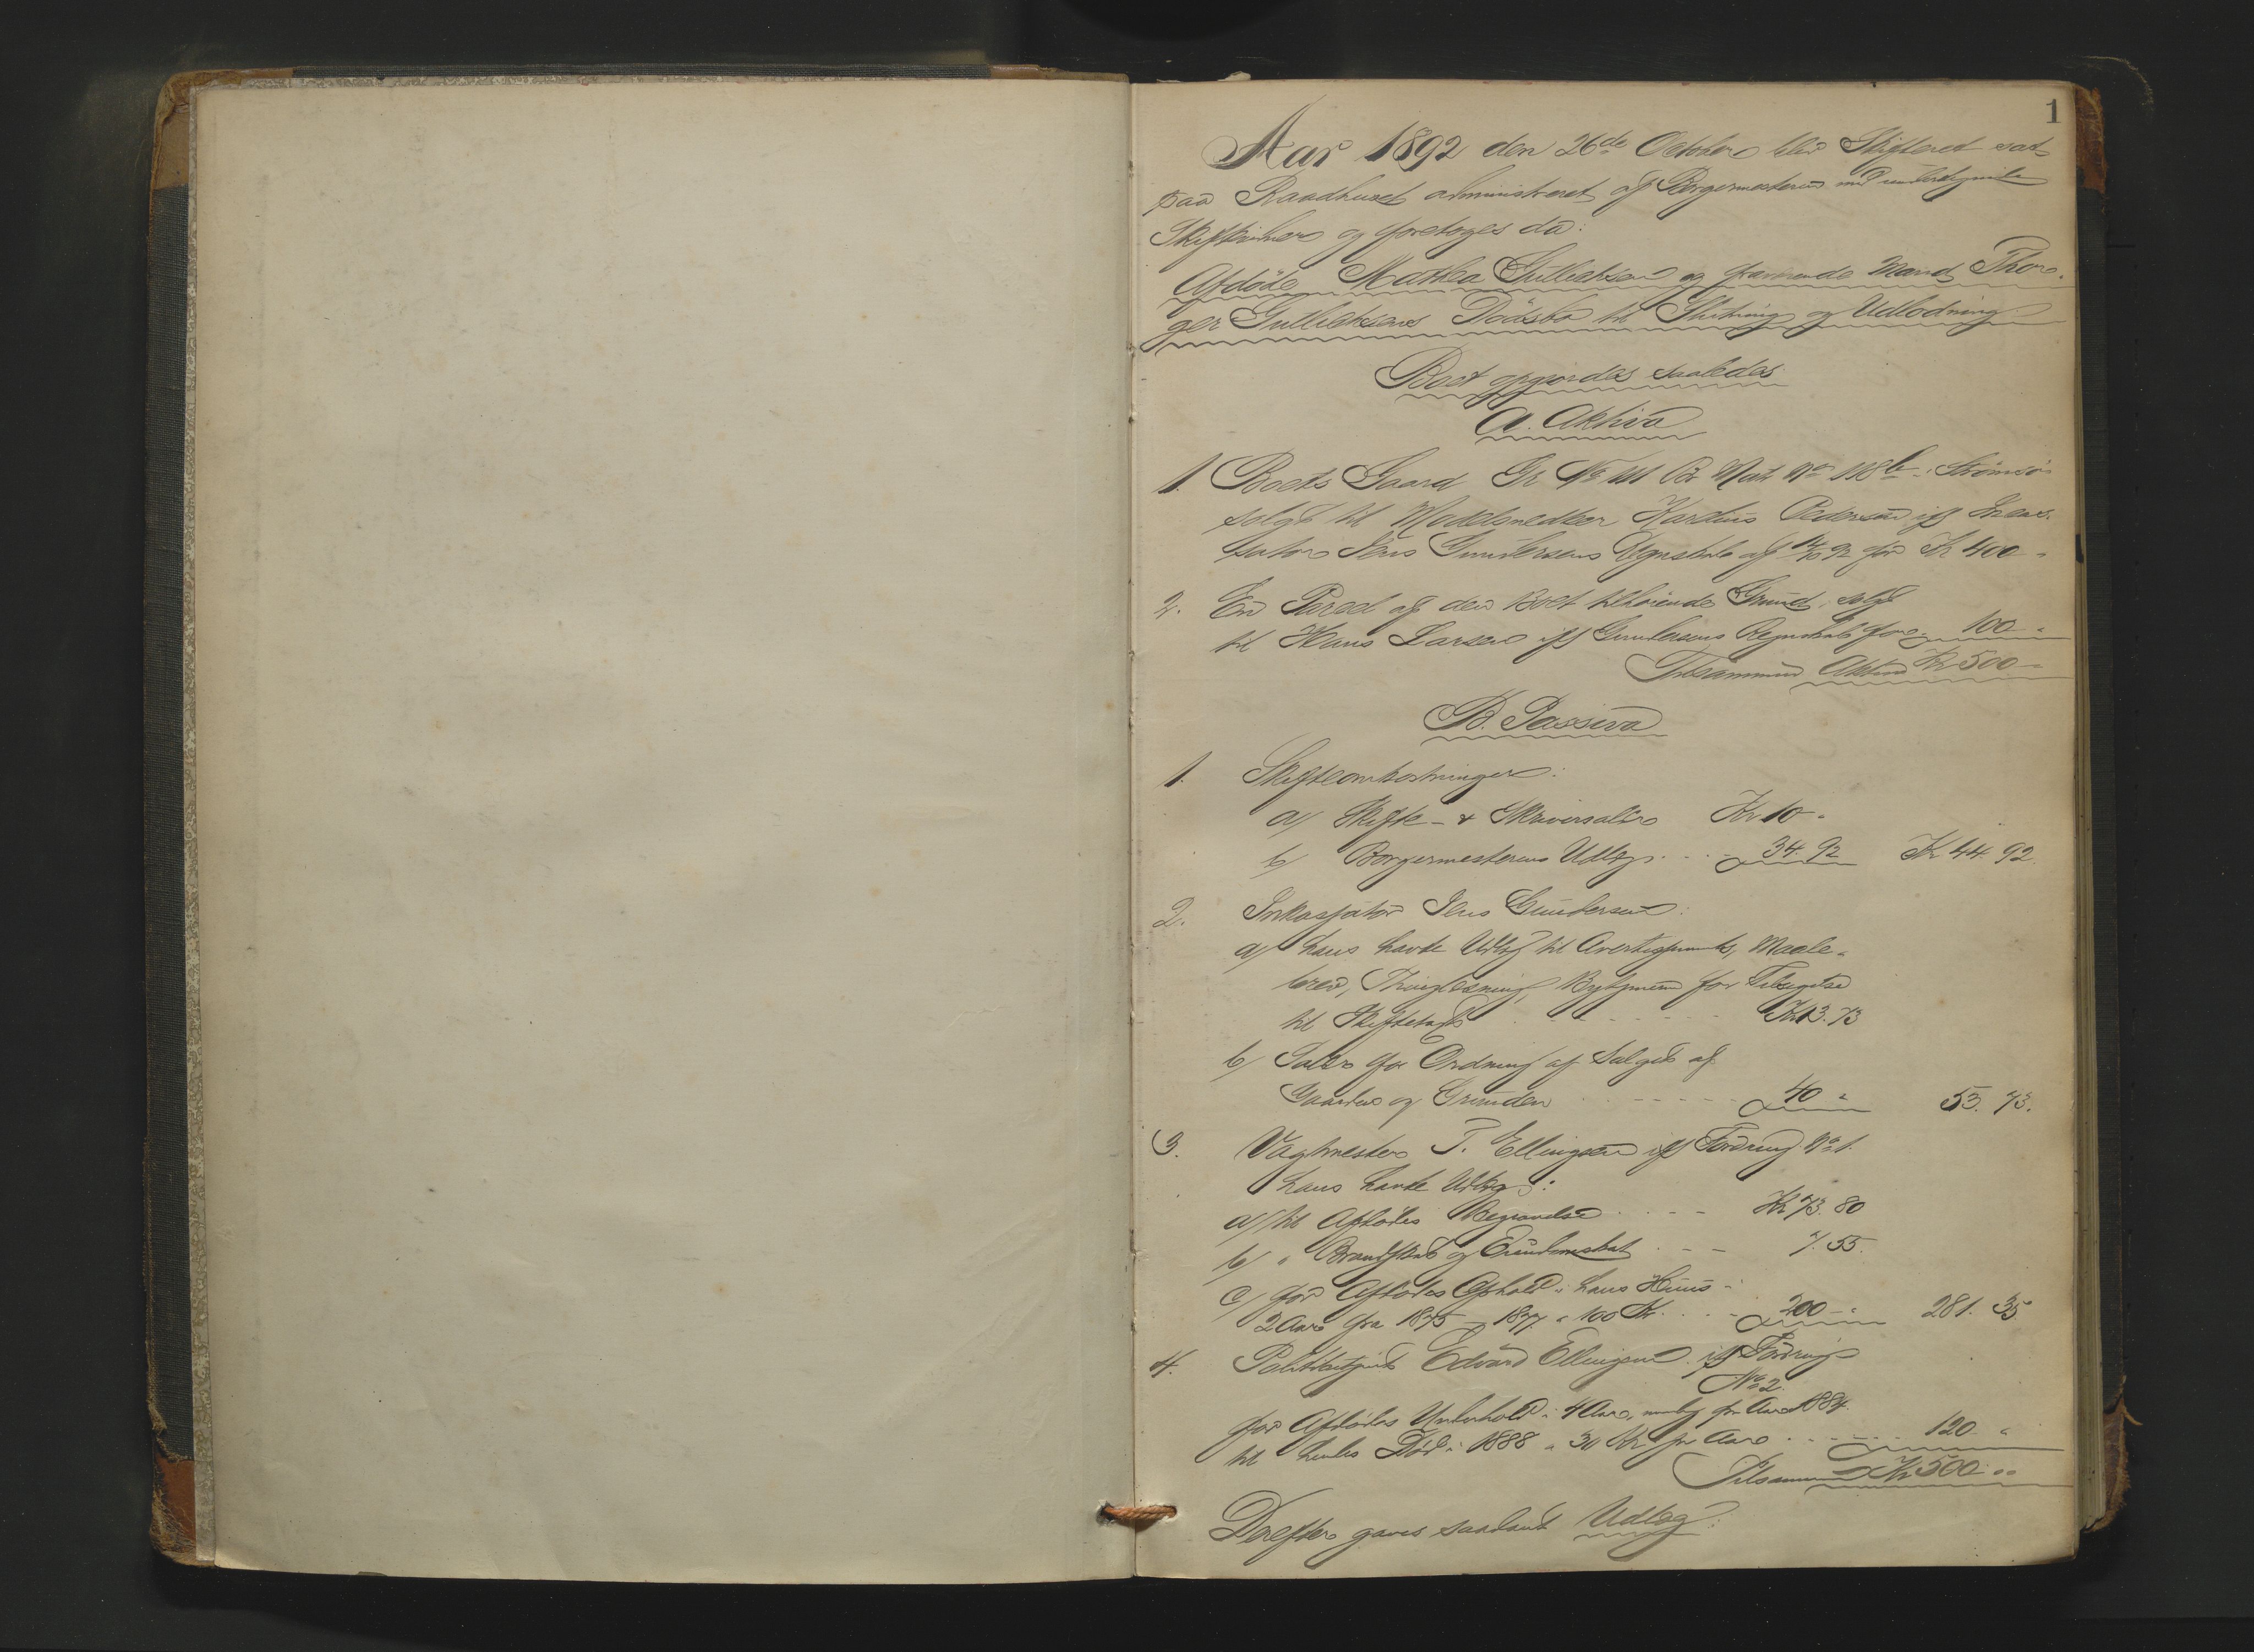 1
Aar 1892 den 26de October blev Skifteret sat
paa Raadhuset administreret af Borgermesteren med undertegnede
Skiftevidner og foretoges da:
Afdöde Mathea Gulliksens og fraværende Mand Thor-
ger Gulliksens Dödsbo til Slutning og Udlodning
Boet opgjordes saaledes
A. Aktiva
1. Boets Gaard Gr No 111 Br Mat No 118b i Strömsö
solgt til Karelius Pedersen iflg Inkas-
sator Jens Gundersens Regnskab af 92 for Kr 400 -
2. En Parcel af den Boet tilhörende Grund, solgt
til Hans Larsen iflg Gundersens Regnskab for 100 -
Tilsammen Aktiva Kr 500 -
B. Passiva
1. Skifteomkostninger:
a/ Skifte- & Skriversalær Kr 10 -
b/ Borgermesterens Udlæg - - - 34.92 Kr 44.92
2. Inkassator Jens Gundersen:
a/ hans havte Udlæg til Avertissements, Maale-
brev, Thinglæsning, for Tilsigelse
til Skiftetægt - - - - - Kr 13.73
b/ Salær for Ordning af Salget af
Gaarden og Grunden - - - - - 40 - 53.73.
3. Vagtmester T. Ellingsen iflg Fordring No 1.
hans havte Udlæg:
a/ til Afdödes Begravelse - - - Kr 73.80
b/ " Brandskat og Eiendomsskat - - - 7.55.
c/ for Afdödes Ophold i hans Huus i
2 Aar fra 1875 - 1877 a 100 Kr. - - 200 - 281.35
4. Politibetjent Edvard Ellingsen iflg Fordring
No 2.
for Afdödes Underhold i 4 Aar, nemlig fra Aar 1884
til hendes Död i 1888 a 30 Kr pr Aar - - - - - 120 -
Tilsammen Kr 500 - "
Derefter gaves saadant Udlæg: